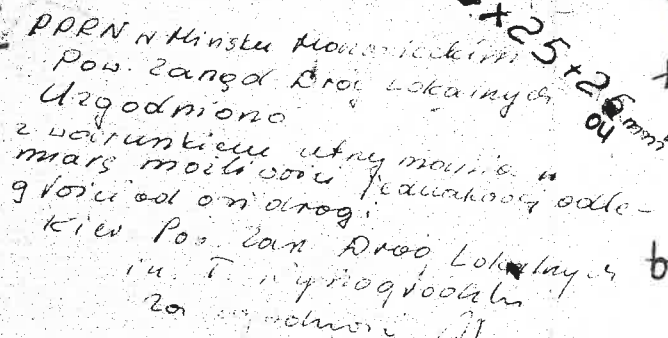 PPRN w Mińsku Mazowieckim
Pow. Zarząd Dróg Lokalnych
Uzgodniono
z warunkiem utrzymania w
miarę możliwości jednakowej odle-
głości od osi drogi
Kier Pow Zarz Dróg Lokalnych
Za zgodność
x25+26mm
04
b